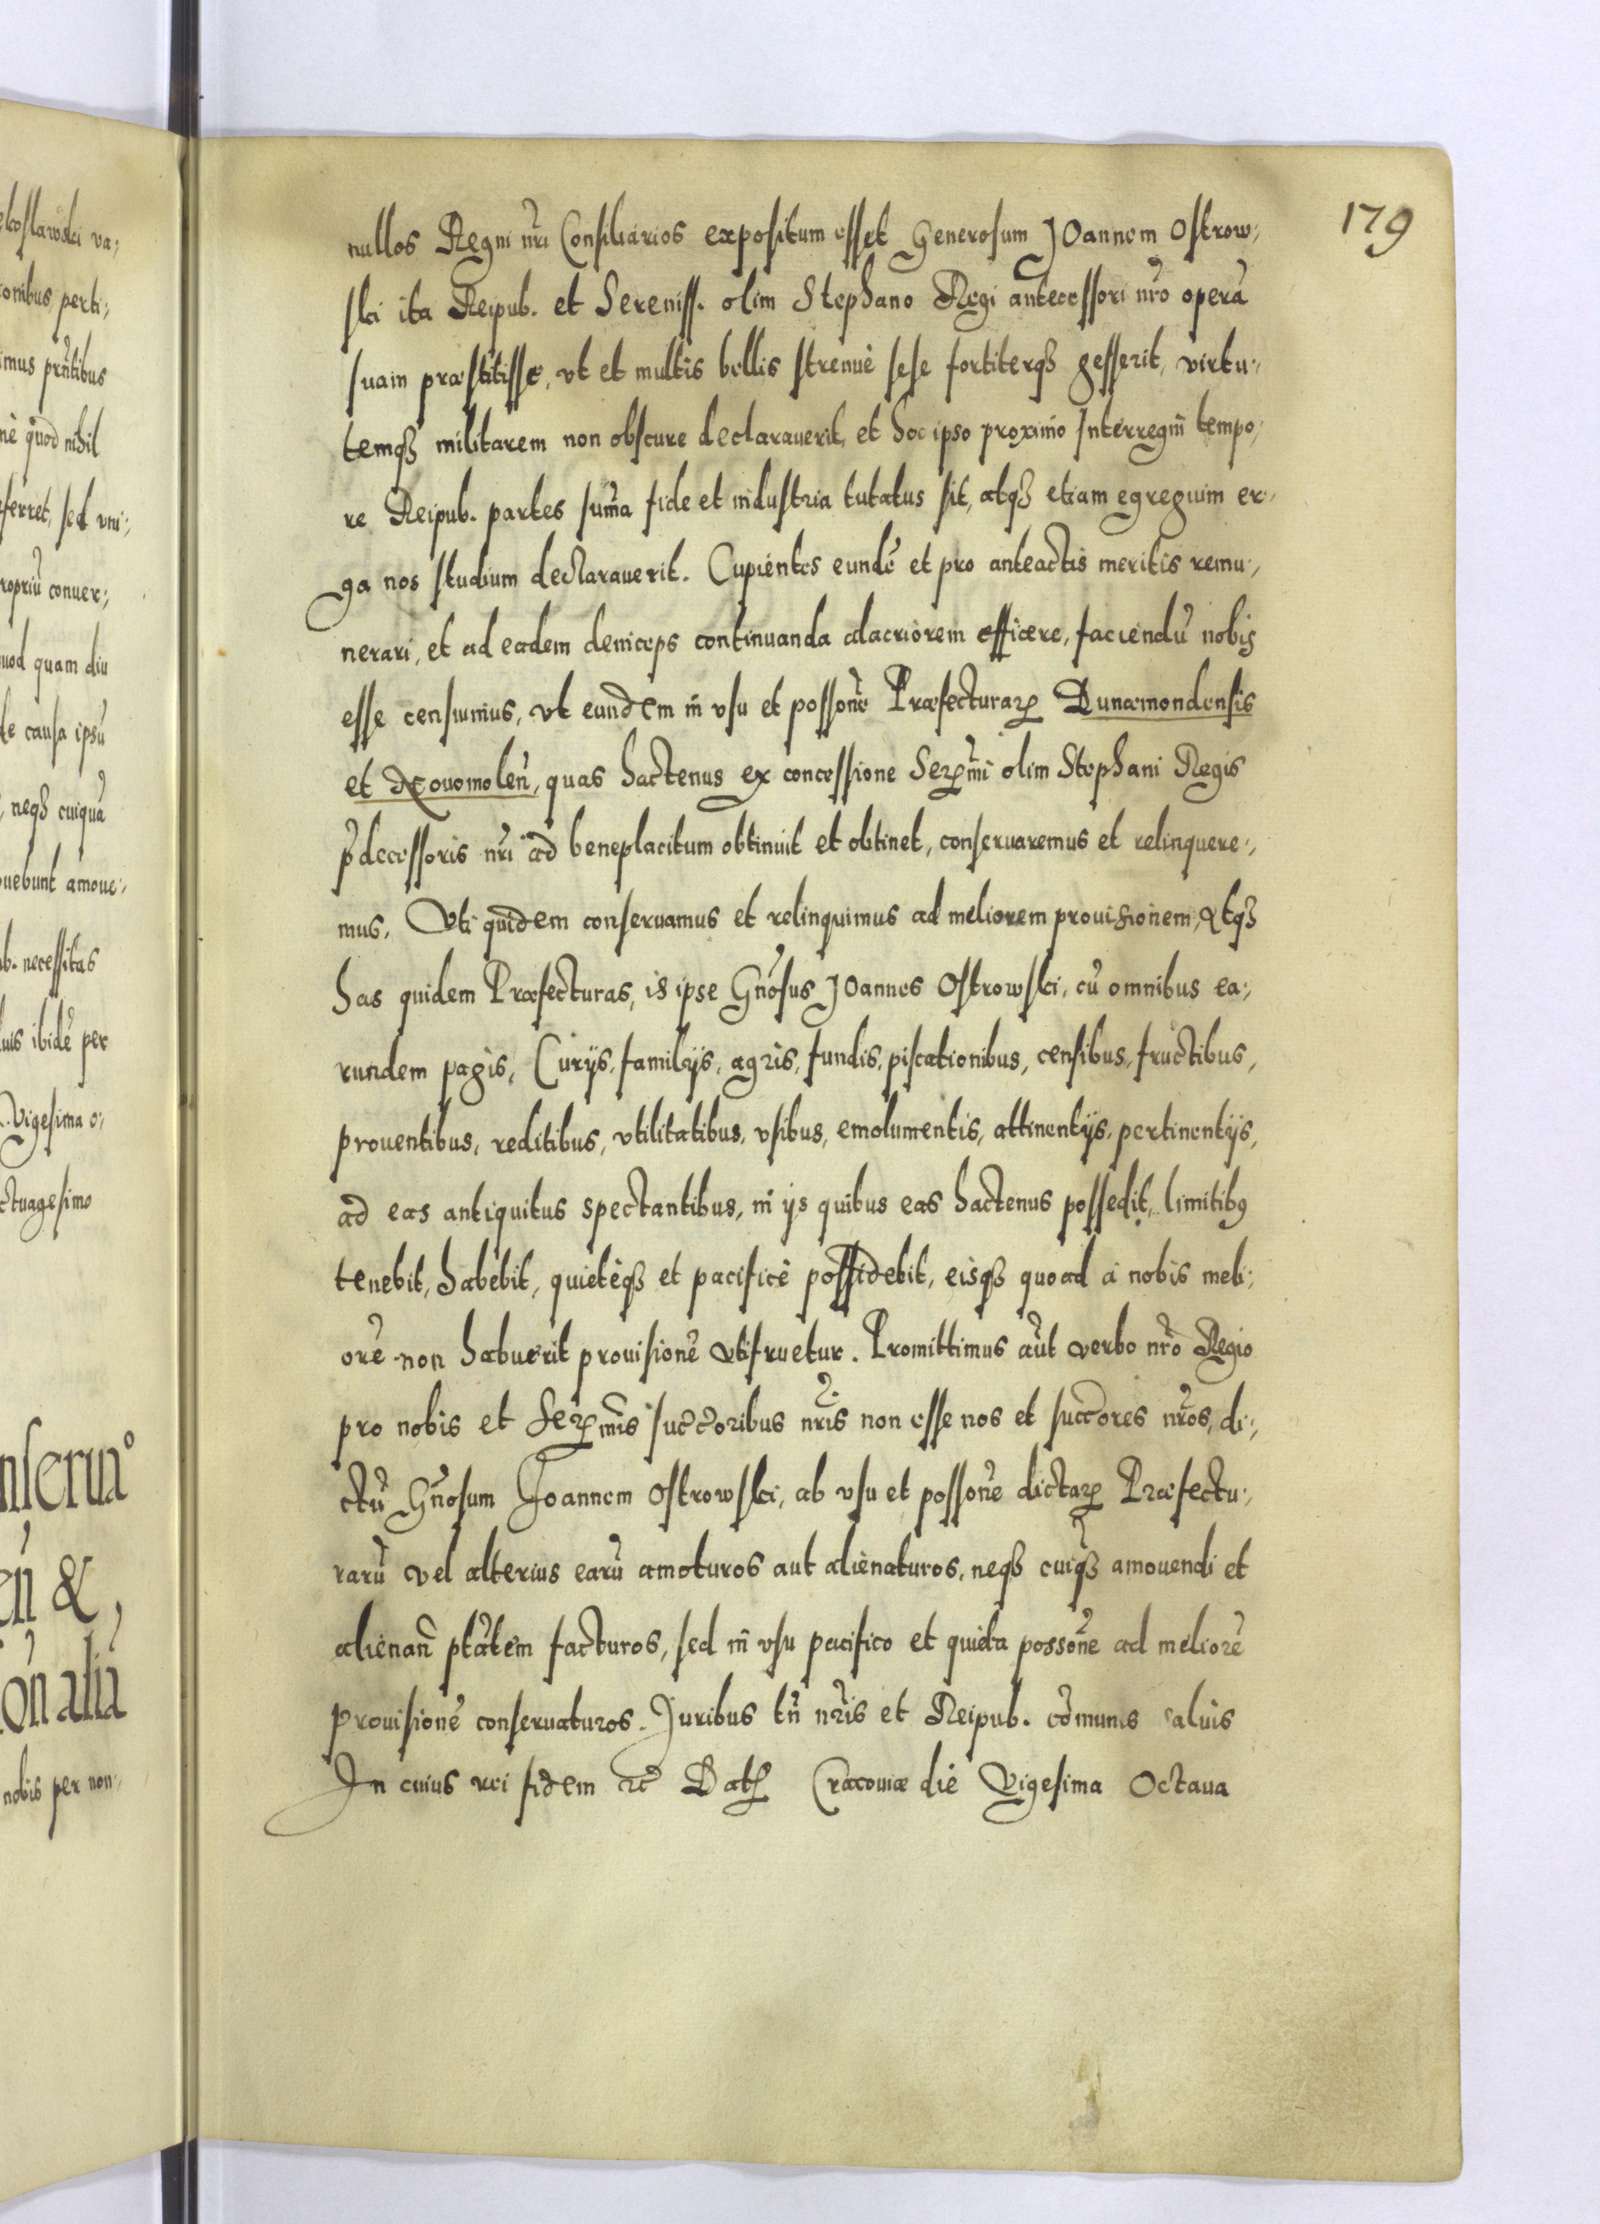 179
nullos Regni nr̃i Consiliarios expositum esset Generosum Joannem Ostrow:
ski ita Reipub. et Sereniss. olim Stephano Regi antecessori nr̃o operã
suam præstitisse, vt et multis bellis strenuè sese fortiterq₃ gesserit, virtu:
temq₃ militarem non obscure declarauerit, et hoc ipso proximo Interregni tempo:
re Reipub. partes sum̃a fide et industria tutatus sit, atq₃ etiam egregium er:
ga nos studium declarauerit. Cupientes eundẽ et pro anteactis meritis remu:
nerari, et ad eadem deinceps continuanda alacriorem efficere, faciendũ nobis
esse censuimus, vt eundem in vsu et possonẽ Præfecturaꝝ Dunæmondensis
et Nouomoleñ, quas hactenus ex concessione Serꝝmi olim Stephani Regis
p̃decessoris nr̃i ad beneplacitum obtinuit et obtinet, conseruaremus et relinquere:
mus. Vti quidem conseruamus et relinquimus ad meliorem prouisionem, Atq₃
has quidem Præfecturas, is ipse Gñosus Joannes Ostrowski, cũ omnibus ea:
rundem pagis, Curijs, familijs, agris, fundis, piscationibus, censibus, fructibus,
prouentibus, reditibus, vtilitatibus, vsibus, emolumentis, attinentijs, pertinentijs,
ad eas antiquitus spectantibus, in ijs quibus eas hactenus possedit, limitibꝰ
tenebit, habebit, quietèq₃ et pacificè possidebit, eisq₃ quoad à nobis meli:
orẽ non habuerit prouisionẽ vtifruetur. Promittimus aũt verbo nr̃o Regio
pro nobis et Serꝝmis succ̃oribus nr̃is non esse nos et succ̃ores nr̃os, di:
ctũ Gñosum Joannem Ostrowski, ab vsu et possonẽ dictaꝝ Præfectu:
rarũ vel alterius earũ amoturos aut alienaturos, neq₃ cuiq₃ amouendi et
alienañ ptãtem facturos, sed in vsu pacifico et quieta possonẽ ad meliorẽ
prouisionẽ conseruaturos. Juribus tñ nr̃is et Reipub. cõmunis saluis
In cuius rei fidem ec̃ Datꝝ Cracouiæ die Vigesima Octaua